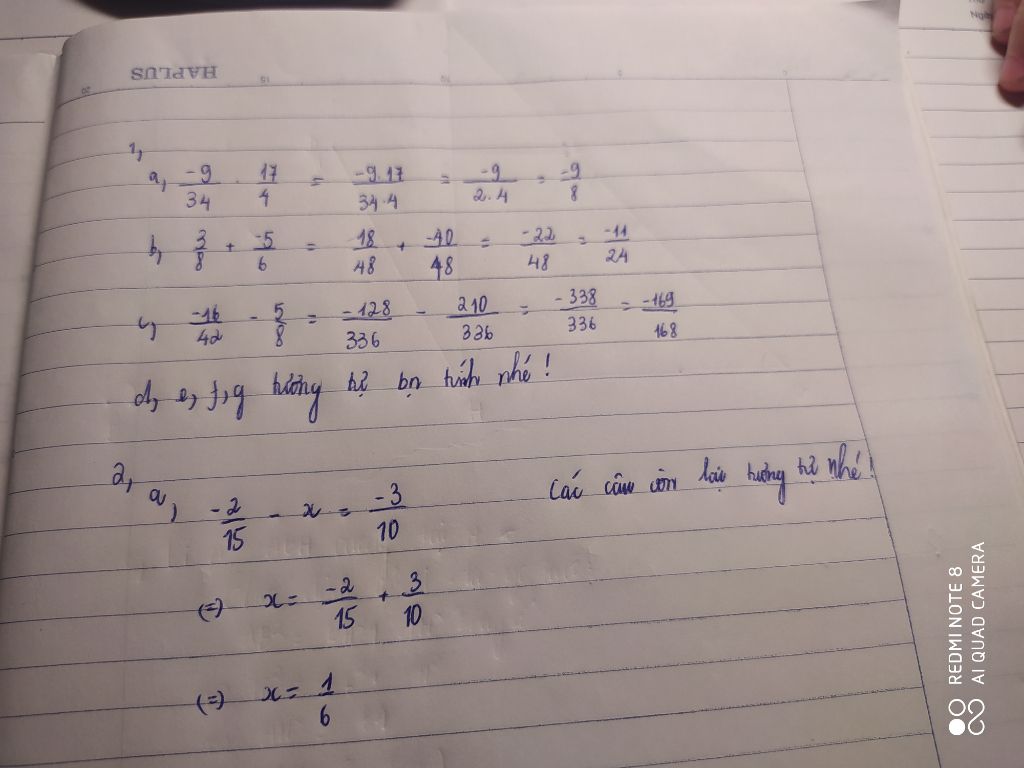 HAPLUS
1,
a, -9/34 . 17/4 = -9.17/34.4 = -9/2.4 = -9/8
b, 3/8 + -5/6 = -18/48 + -40/48 = -22/48 = -11/24
c, -16/42 - 5/8 = -128/336 - 210/336 = -338/336 = -169/168
d, e, f, g tương tự bn tính nhé!
2, a, -2/15 - x = -3/10
Các câu còn lại tương tự nhé!
(=) x = -2/15 + 3/10
(=) x = 1/6
REDMI NOTE 8
AI QUAD CAMERA